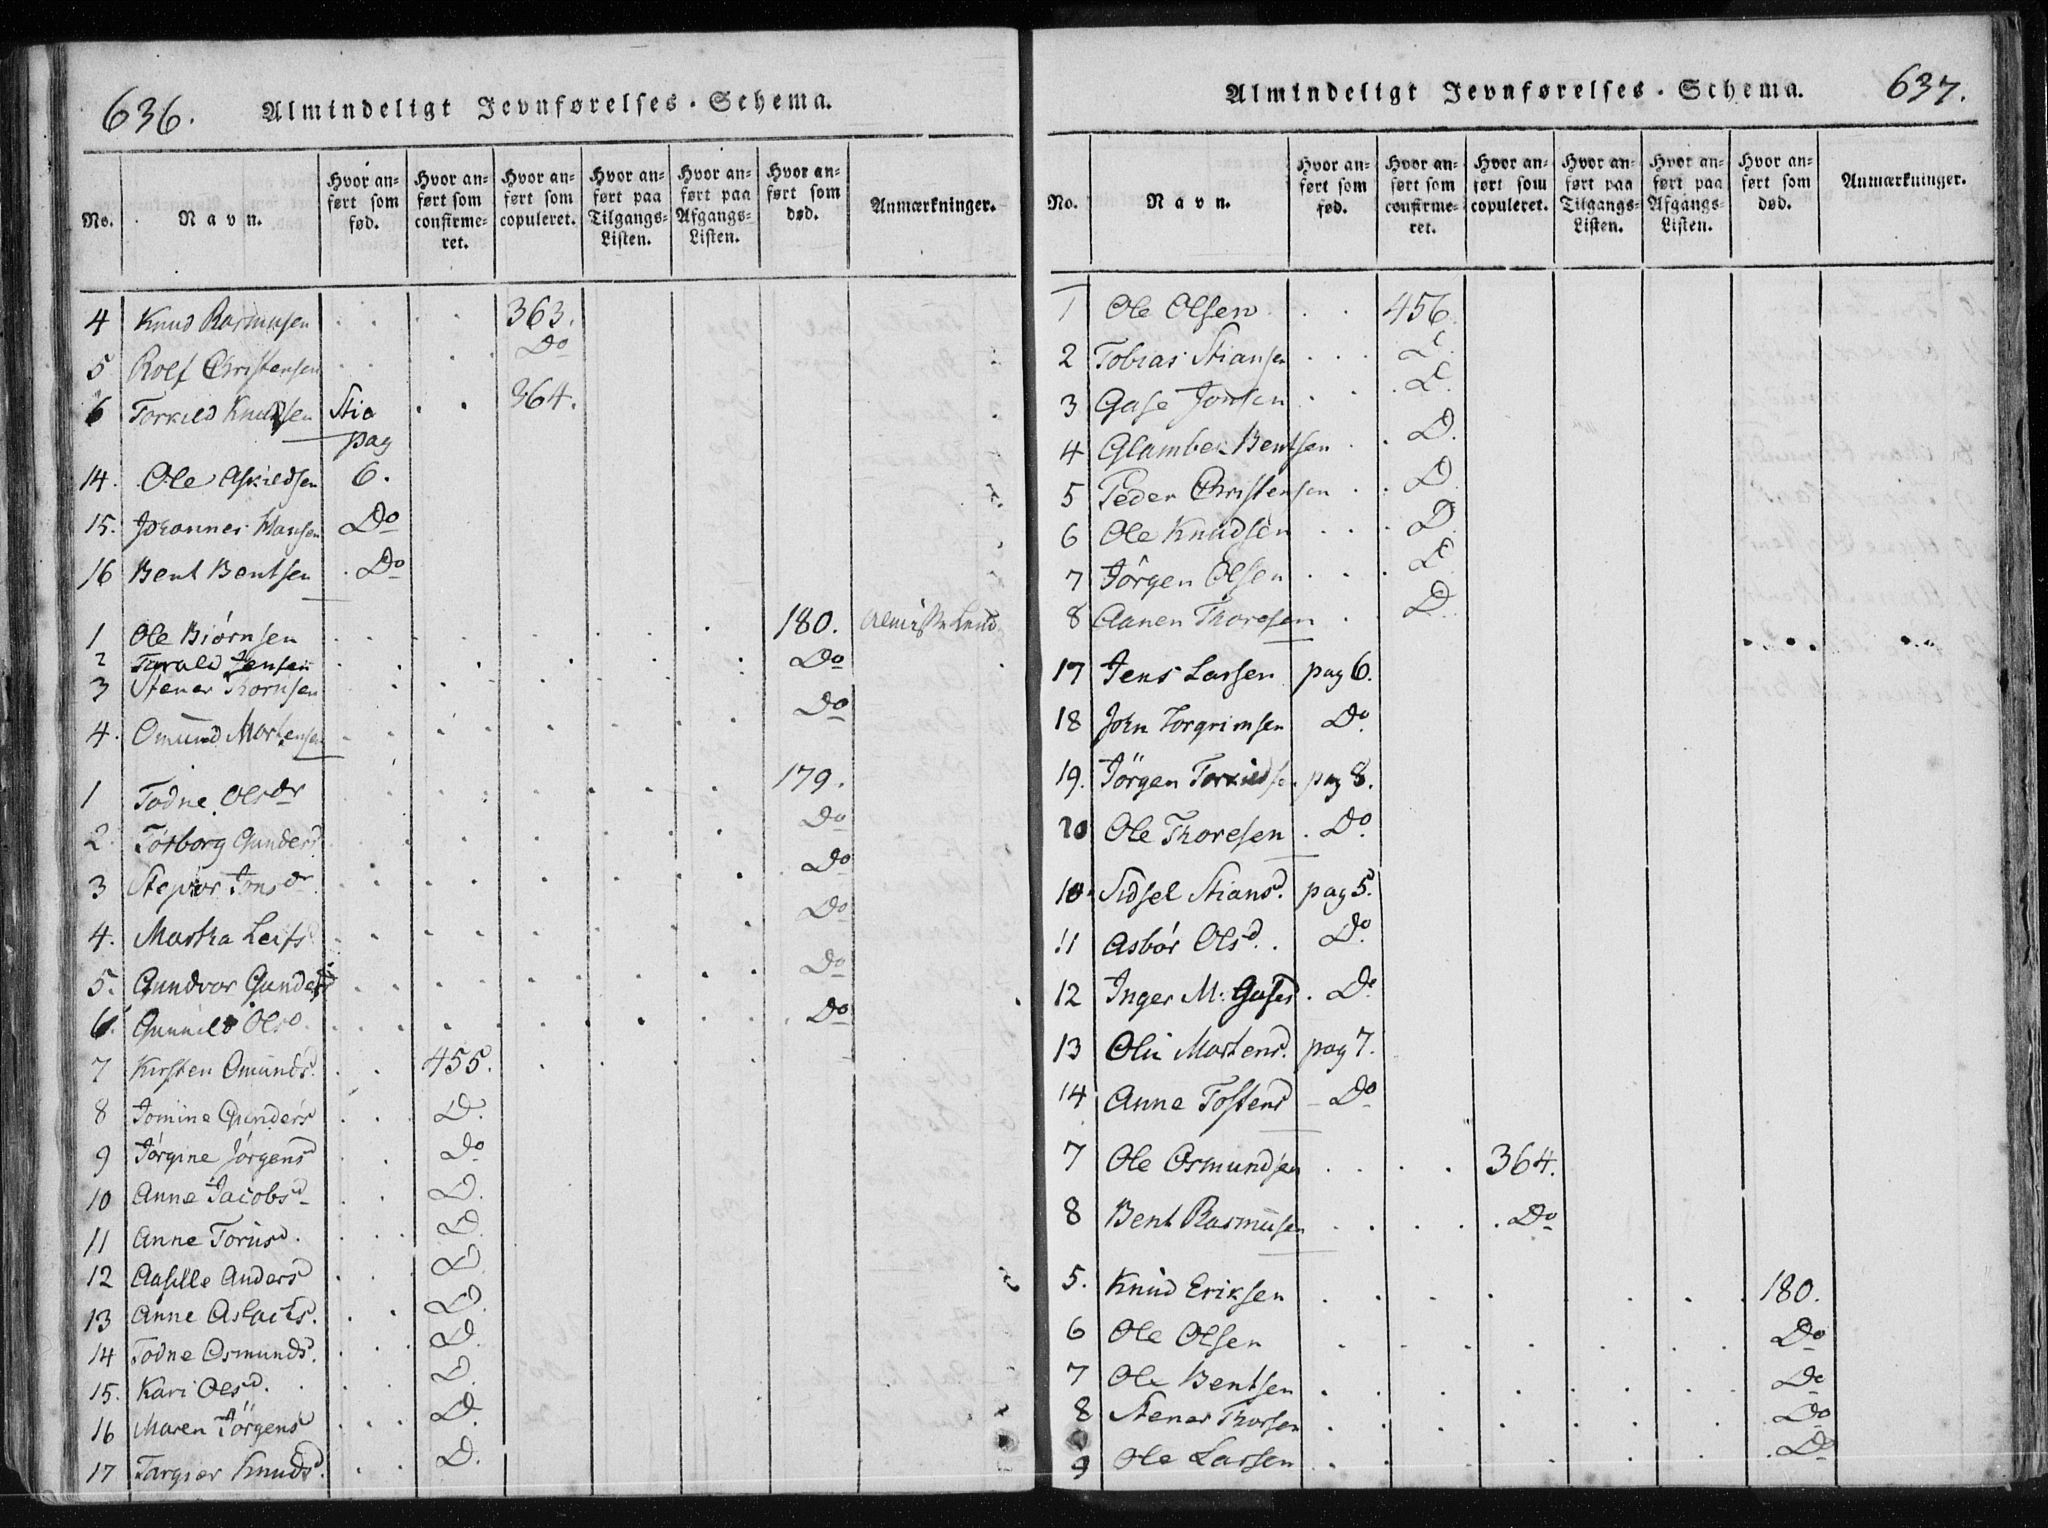 636. Almindeligt Jevnførelses-Schema.
No. Navn. Hvor anført som fød. Hvor anført som confirmeret. Hvor anført som copuleret. Hvor anført paa Tilgangs-Listen. Hvor anført paa Afgangs-Listen. Hvor anført som død. Anmærkninger.
4 Knud Rasmusen . . . . 363.
5 Rolf Christensen . . . . Do
6 Torkild Knudsen Stia . . 364.
pag
14. Ole Askildsen 6.
15. Johannes Hansen Do
16 Bent Bentsen . Do
1 Ole Biørnsen 180.
2 Tarald Jensen Do
3 Stener Thornsen
4. Omund Mortensen Do
1 Todne Olsdr 179.
2. Torborg Gunders Do
3 Jonsdr Do
4. Martha Leifs Do
5. Gundvor Gunders Do
6. Gunnild Olsd. Do
7 Kirsten Omunds. 455.
8 Jomine Gunders D.
9 Jörgine Jörgensd Do
10 Anne Jacobsd D.
11 Anne Torusd. D.
12 Aasille Anders D.
13 Anne Aslacks. D.
14 Todne Osmunds. D.
15. Kari Olsd. D.
16 Maren Jörgens D.
17 Targier Knudsd. D.
Almindeligt Jevnførelses-Schema. 637.
No. Navn. Hvor anført som fød. Hvor anført som confirmeret. Hvor anført som copuleret. Hvor anført paa Tilgangs-Listen. Hvor anført paa Afgangs-Listen. Hvor anført som død. Anmærkninger.
1 Ole Olsen . . 456.
2 Tobias Stiansen . . . D.
3 Gase Jonsen . . . D.
4 Glambek Bentsen . . D.
5 Peder Christensen . . D.
6 Ole Knudsen . . . D.
7 Jörgen Olsen . . . D.
8 Aanen Thoresen . . D.
17 Jens Larsen pag 6.
18 John Torgrimsen Do.
19. Jörgen Torkildsen pag 8.
20 Ole Thoresen . Do.
10. Sidsel Stiansd. pag 5.
11 Asbör Olsd. . Do.
12 Inger M. Gases . Do.
13 Oli Mortens. pag 7.
14 Anne Tostens - Do
7 Ole Osmundsen . . . . 364.
8 Bent Rasmusen . . . . Do
5. Knud Eriksen 180.
6 Ole Olsen Do
7 Ole Bentsen Do
8 Stener Thorsen Do
9 Ole Larsen Do